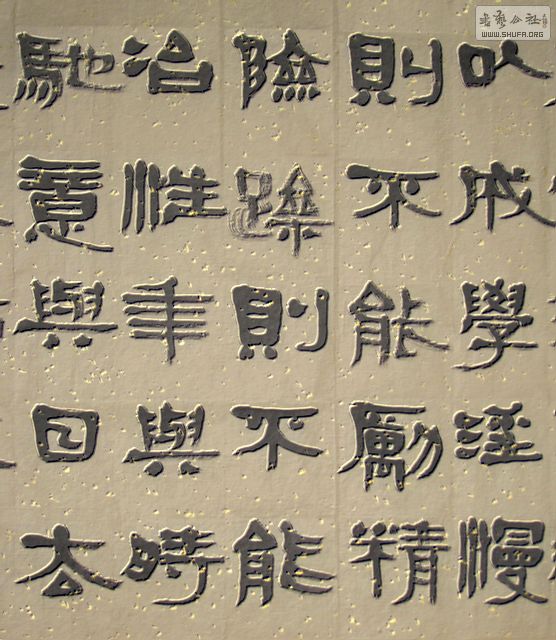 以成學淫慢
則不能勵精
險躁則不能
治性年與時
馳意與日去
書藝公社
WWW.SHUFA.ORG